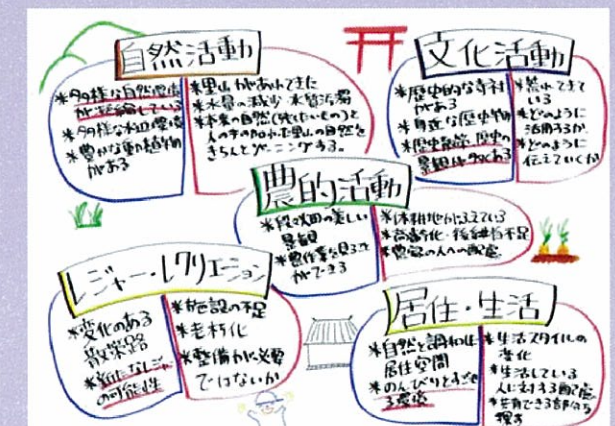 自然活動
*多様な自然環境
が凝縮している
*多様な水辺環境
*豊かな動植物
がある
*里山があれてきた
*水量の減少・水質汚濁
*本来の自然(残したいもの)と
人の手の加わった里山の自然を
きちんとゾーニングする。
文化活動
*歴史的な寺社
がある
*身近な歴史物
*歴史
景観
*荒れてきて
いる
*どのように
活用するか
*どのように
伝えていくか
農的活動
*段々田の美しい
景観
*農作業を見ること
ができる
*休耕地がふえている
*高齢化・後継者不足
*農家の人への配慮
レジャー・レクリエーション
*変化のある
散策路
*新たなレジャー
の可能性
*施設の不足
*老朽化
*整備が必要
ではないか
居住・生活
*自然と調和した
居住空間
*のんびりとすごせ
る環境
*生活スタイルの
変化
*生活している
人に対する配慮
*共有できる部分を
探す